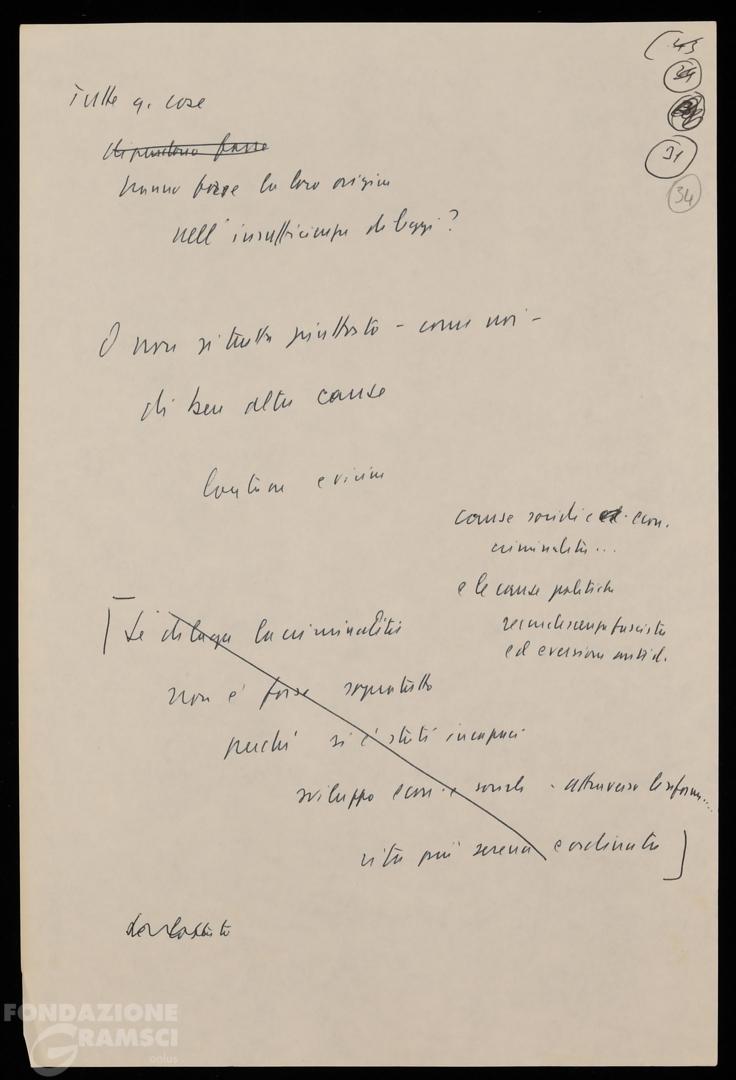 43
34
31
34
Tutte q. cose
dipendono forse
hanno forse la loro origine
nell'insufficienza di leggi?
O non si tratta piuttosto - come noi -
di ben altre cause
lontane e vicine
cause sociali ed econ.
criminalità...
e le cause politiche
recrudescenza fascista
ed eversione antid.
Se dilaga la criminalità
non è forse sopratutto
perché si è stati incapaci
sviluppo econ. e sociale - attraverso le riforme....
vita più serena e ordinata
FONDAZIONE
GRAMSCI
onlus